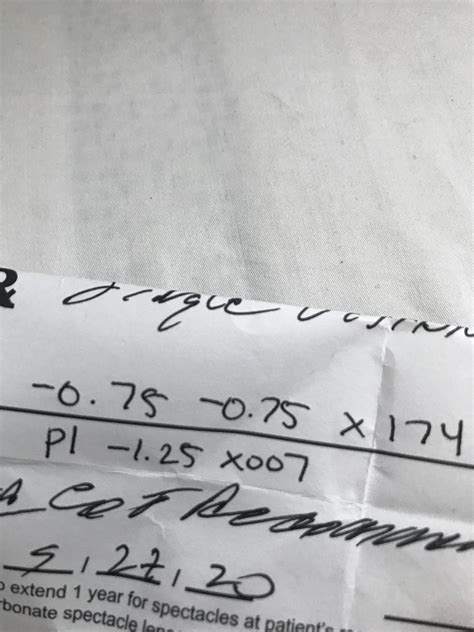 ℞ Single Vision
-0.75 -0.75 x 174
Pl -1.25 x007
5, 27, 20
extend 1 year for spectacles at patient's
bonate spectacle